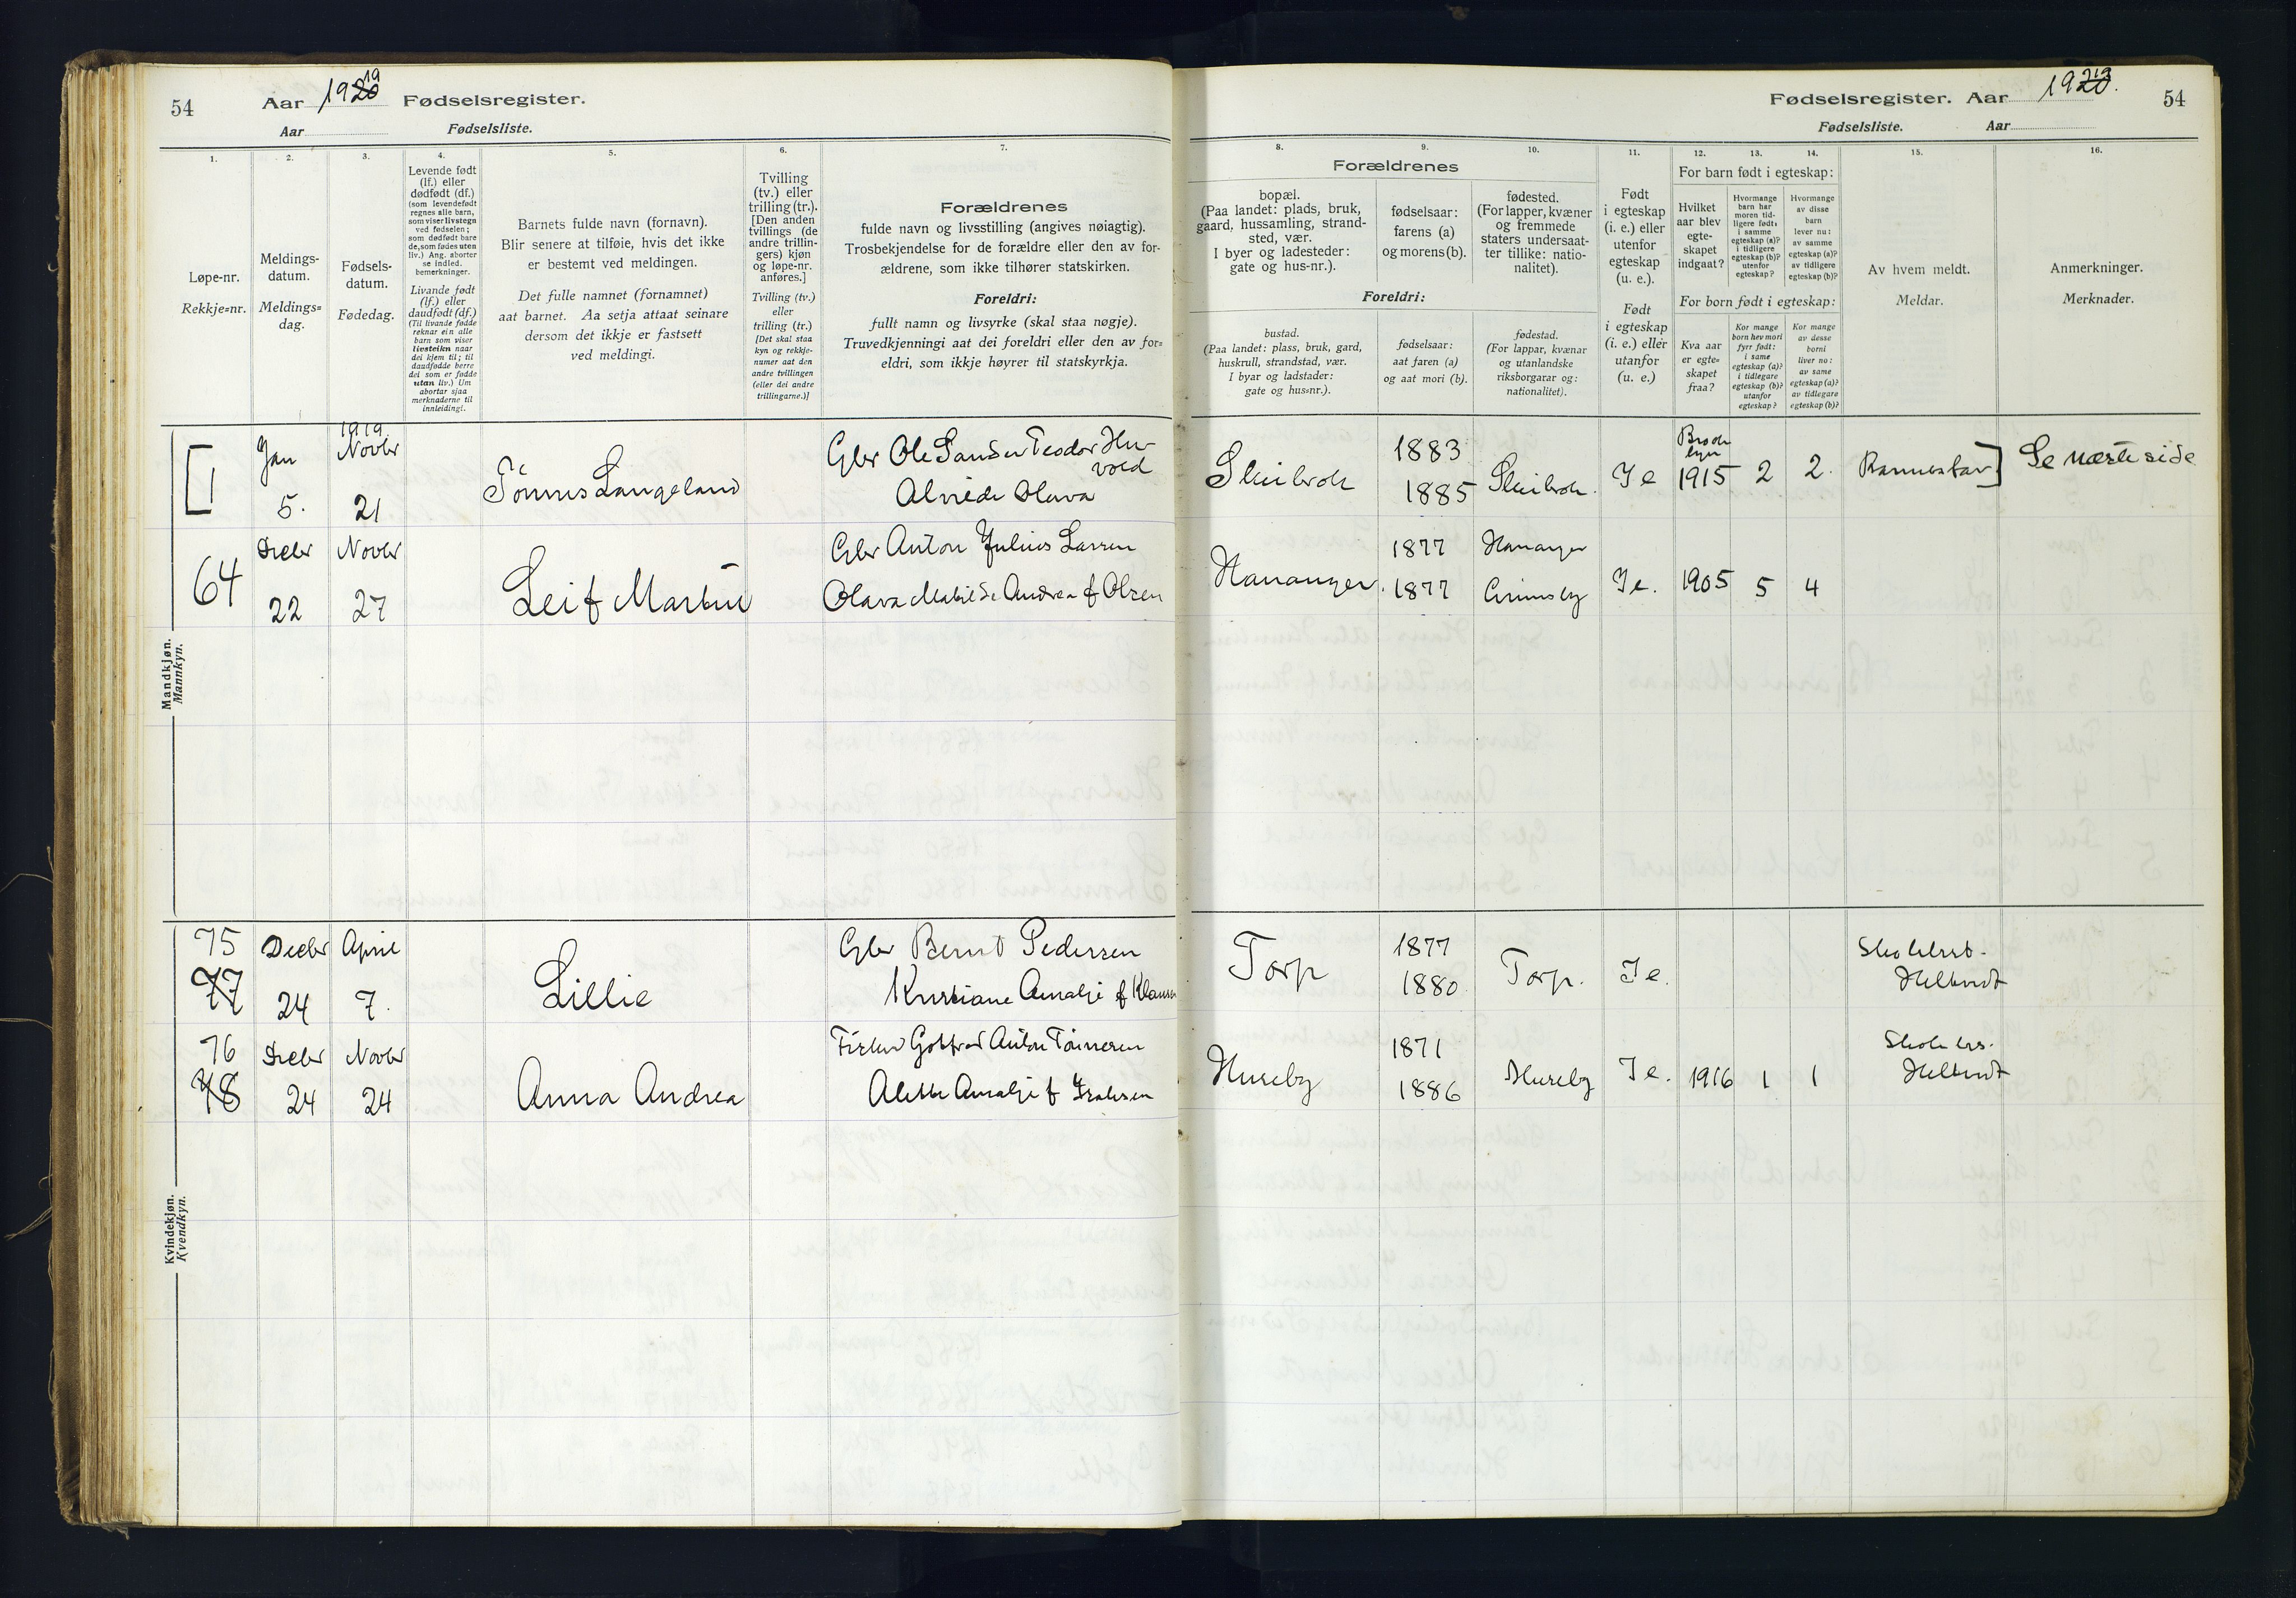 54
Aar 1920 19 Fødselsregister.
Aar Fødselsliste.
1.
2.
3.
4.
5.
6.
7.
Løpe-nr.
Rekkje=nr.
Meldings-
datum.
Meldings=
dag.
Fødsels-
datum.
Fødedag.
Levende født
(lf.) eller
dødfødt (df.)
(som levendefødt
regnes alle barn,
som viser livstegn
ved fødselen;
som dødfødt bare
de, som fødes uten
liv.) Ang. aborter
se indled.
bemerkninger.
Livande født
(lf.) eller
daudfødt (df.)
(Til livande fødde
reknar ein alle
barn som viser
livsteikn naar
dei kjem til; til
daudfødde berre
dei som er fødde
utan liv.) Um
abortar sjaa
merknaderne til
innleidingi.
Barnets fulde navn (fornavn).
Blir senere at tilføie, hvis det ikke
er bestemt ved meldingen.
Det fulle namnet (fornamnet)
aat barnet. Aa setja attaat seinare
dersom det ikkje er fastsett
ved meldingi.
Tvilling
(tv.) eller
trilling (tr.).
[Den anden
tvillings (de
andre trillin-
gers) kjøn
og løpe-nr.
anføres.]
Tvilling (tv.)
eller
trilling (tr.)
[Det skal staa
kyn og rekkje-
numer aat den
andre tvillingen
(eller dei andre
trillingarne.)]
Forældrenes
fulde navn og livsstilling (angives nøiagtig).
Trosbekjendelse for de forældre eller den av for-
ældrene, som ikke tilhører statskirken.
Foreldri:
fullt namn og livsyrke (skal staa nøgje).
Truvedkjenningi aat dei foreldri eller den av for=
eldri, som ikkje høyrer til statskyrkja.
Mandkjøn.
Mannkyn.
[1
Jan
5.
1919
Novbr
21
Tönnes Langeland
Gbr Ole
Teodor
Olava
64
Decbr
22
Novbr
27
Leif Martin
Gbr Anton Julius Larsen
Olava Matilde Andrea f Olsen
Kvindekjøn.
Kvendkyn.
75
77
Decbr
24
April
7
Lillie
Gbr Bernt Pedersen
Kristiane Amalje f Klausen
76
78
Decbr
24
Novbr
24
Anna Andrea
Anton Tönnesen
Alette Amalje f
Fødselsregister. Aar 1920. 19
54
Fødselsliste. Aar
8.
9.
10.
11.
12.
13.
14.
15.
16.
Forældrenes
bopæl.
(Paa landet: plads, bruk,
gaard, hussamling, strand-
sted, vær.
I byer og ladesteder:
gate og hus-nr.).
fødselsaar:
farens (a)
og morens (b).
fødested.
(For lapper, kvæner
og fremmede
staters undersaat-
ter tillike: natio-
nalitet).
Foreldri:
bustad.
(Paa landet: plass, bruk, gard,
huskrull, strandstad, vær.
I byar og ladstader:
gate og hus=nr.).
fødselsaar:
aat faren (a)
og aat mori (b).
fødestad.
(For lappar, kvænar
og utanlandske
riksborgarar og:
nationalitet).
Født
i egteskap
(i. e.) eller
utenfor
egteskap
(u. e.).
Født
i egteskap
(i. e.) eller
utanfor
egteskap
(u. e.)
For barn født i egteskap:
Hvilket
aar blev
egte-
skapet
indgaat?
Hvormange
barn har
moren tid-
ligere født:
i samme
egteskap (a)?
i tidligere
egteskap (b)?
utenfor
egteskap?
Hvormange
av disse
barn
lever nu:
av samme
egteskap (a)?
av tidligere
egteskap (b)?
For born født i egteskap:
Kva aar
er egte=
skapet
fraa?
Kor mange
born hev mori
fyrr født:
i same
egteskap (a)?
i tidlegare
egteskap (b)?
utanfor
egteskap?
Kor mange
av desse
borni
liver no:
av same
egteskap (a)?
av tidlegare
egteskap (b)?
Av hvem meldt.
Meldar.
Anmerkninger.
Merknader.
Sleibrok
1883
1885
Sleibrok
I e
1915
2
2.
]
Se næste side
Hananger.
1877
1877
Hananger
Grimsby
I e.
1905
5
4
Torp
1877
1880
Torp.
I e.
Heltvedt
Huseby
1871
1886
Huseby
I e.
1916
1
1
Heltvedt